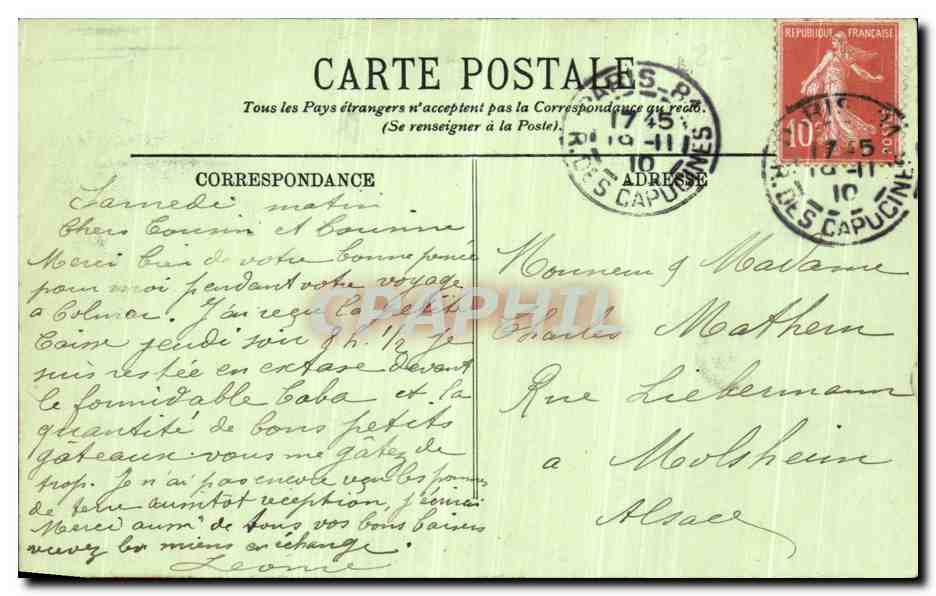 CARTE POSTALE
Tous les Pays étrangers n'acceptent pas la Correspondance au recto.
(Se renseigner à la Poste).
CORRESPONDANCE
Samedi matin
Chers Cousin et Cousine
Merci bien de votre bonne pensée
pour moi pendant votre voyage
a Colmar. J'ai reçu la petite
Caisse jeudi soir 9 h. 1/2 je
suis restée en extase devant
le formidable baba et la
quantité de bons petits
gâteaux vous me gâtez de
trop. Je n'ai pas encore reçu les pommes
de terre aussitot reception, j'écrirai
Merci aussi de tous vos bons baisers
recevez les miens en échange.
Léonie
ADRESSE
Monsieur & Madame
Charles Mathern
Rue Liebermann
a Molsheim
Alsace
REPUBLIQUE FRANÇAISE
10c
POSTES
PARIS-
17 45
19 -11
10
R. DES CAPUCINES
PARIS-
17 45
19 -11
10
R. DES CAPUCINES
CPAPHIL